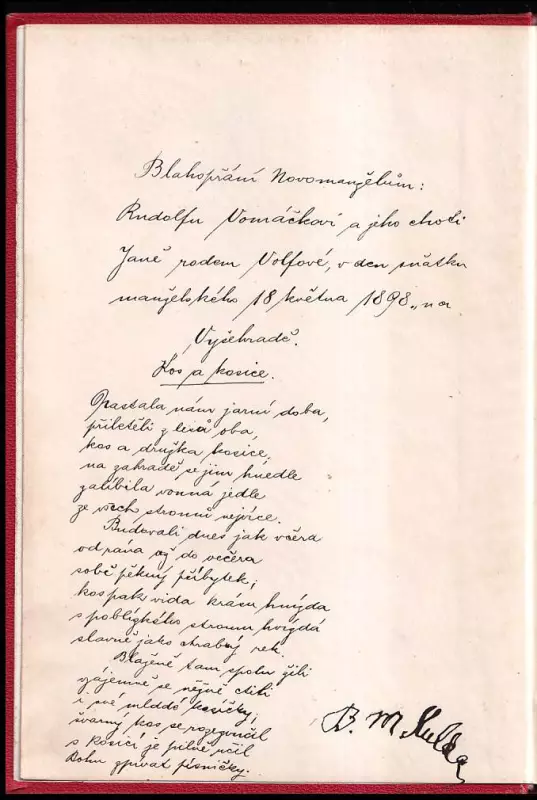 Blahopřání Novomanželům:
Rudolfu Vomáčkovi a jeho choti
Janě rodem Volfové, v den sňatku
manželského 18 května 1898 „na
Vyšehradě.
Kos a kosice.
Nastala nám jarní doba,
přiletěli z lesů oba,
kos a družka kosice,
na zahradě se jim hnedle
zalíbila vonná jedle
ze všech stromů nejvíce.
Budovali dnes jak včera
od rána až do večera
sobě pěkný příbytek;
kos pak vida krásu hnízda
s poblízkého stromu hvízdá
slavně jako chrabrý rek.
Blaženě tam spolu žili
vzájemně se něžně ctili
i své mladé kosičky,
švarný kos se
s kosicí je pilně učil
Bohu zpívat písničky.
B. M. Kulda